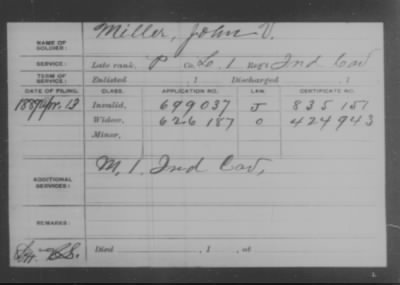 Miller, John V.
NAME OF SOLDIER:
SERVICE: Late rank, P Co. L. 1 Reg't Ind Cav
TERM OF SERVICE: Enlisted , 1 Discharged , 1
DATE OF FILING. CLASS. APPLICATION NO. LAW. CERTIFICATE NO.
1889 Apr. 13 Invalid, 699037 J 835151
Widow, 626187 O 424943
Minor,
ADDITIONAL SERVICES: M, 1, Ind Cav,
REMARKS:
Died , 1 , at